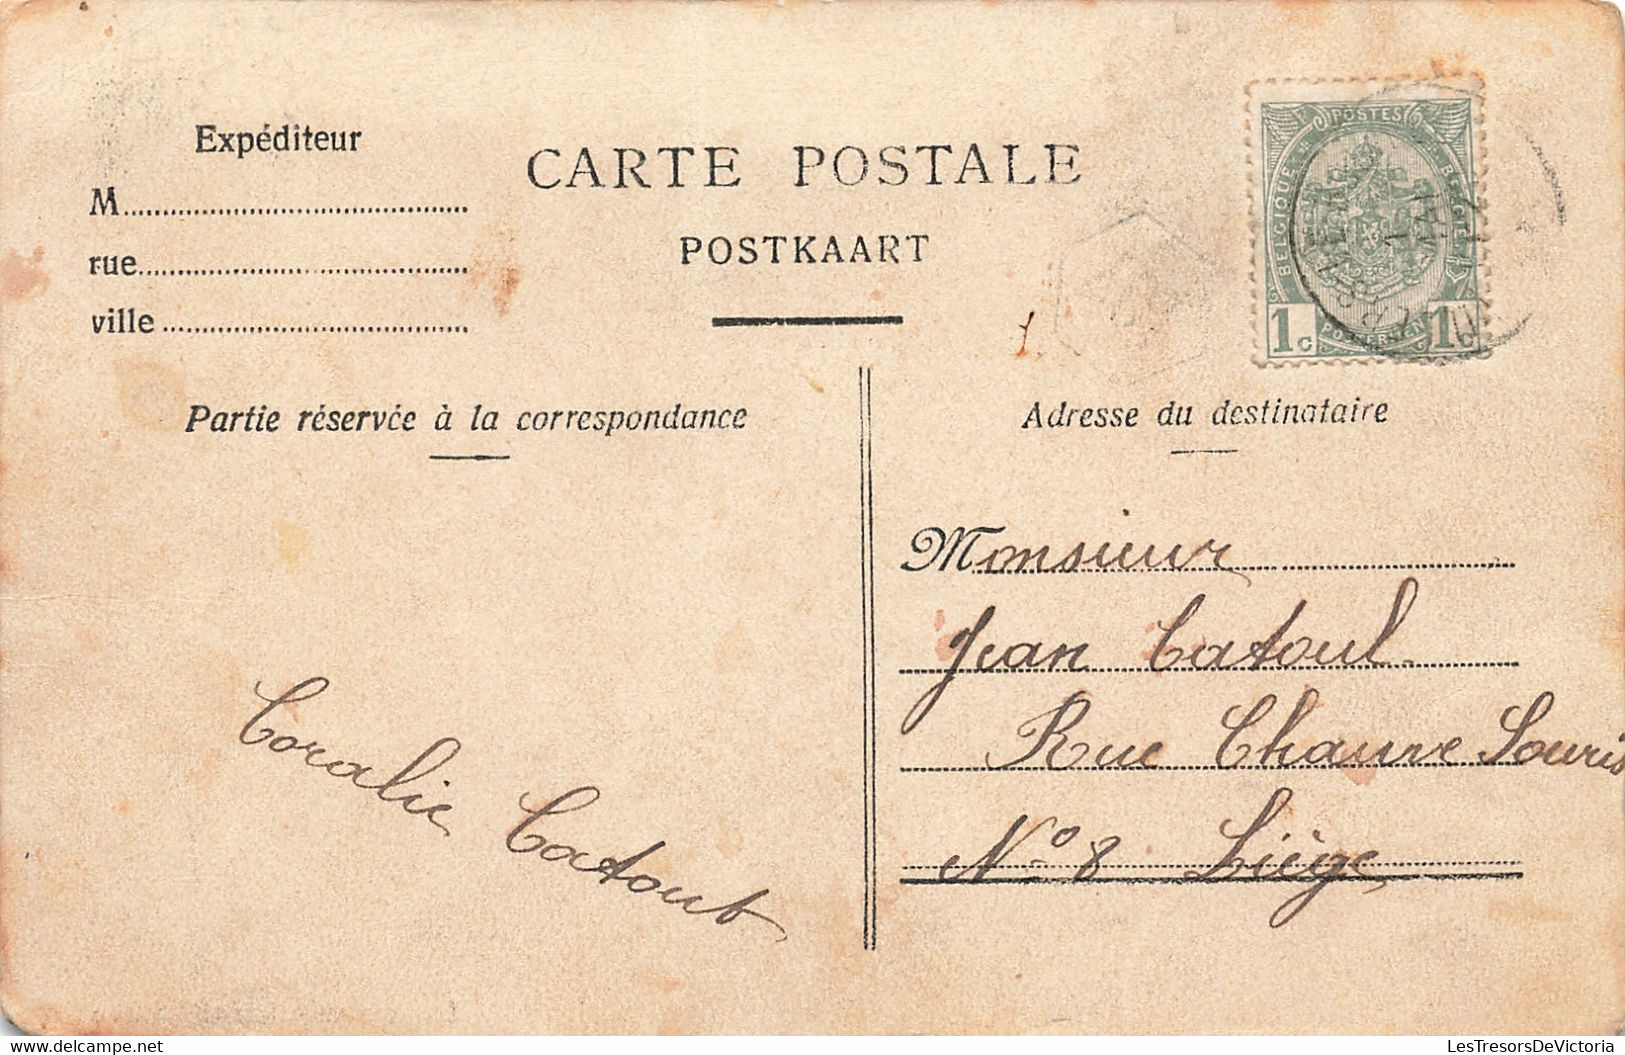 Expéditeur
M
rue
ville
CARTE POSTALE
POSTKAART
POSTES
BELGIQUE
BELGIE
POSTERIJEN
1c
1c
Partie réservée à la correspondance
Adresse du destinataire
Monsieur
Jean Catoul
Rue Chauve Souris
N° 8 Liège
Coralie Catoul
www.delcampe.net
LesTresorsDeVictoria